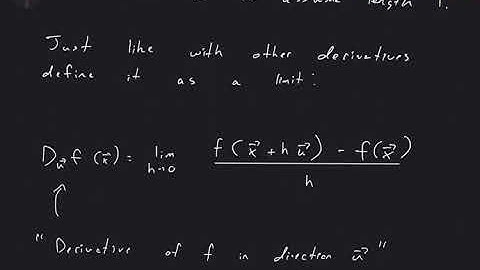 assume length 1.
Just like with other derivatives
define it as a limit:
D_u⃗ f (x⃗) = lim_{h→0} (f(x⃗ + h u⃗) - f(x⃗)) / h
"Derivative of f in direction u⃗"